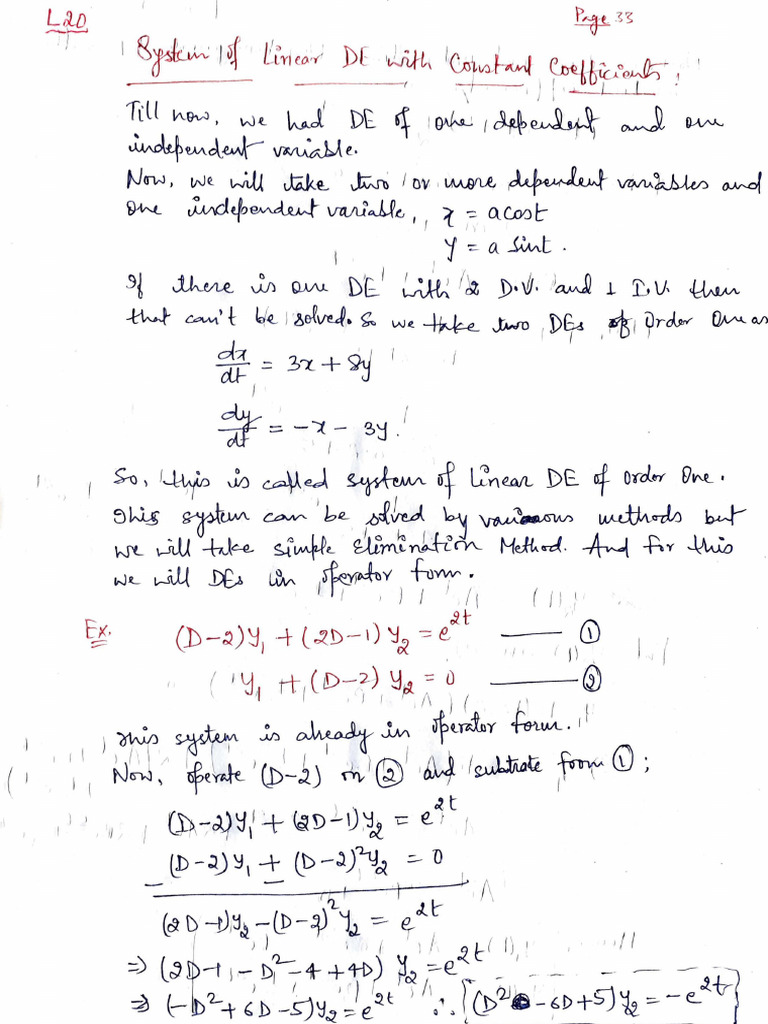 L20
Page 33
System of Linear DE with Constant Coefficients.
Till now, we had DE of one dependent and one
independent variable.
Now, we will take two or more dependent variables and
one independent variable, x = a cost
y = a sint.
If there is one DE with 2 D.V. and 1 I.V. then
that can't be solved. So we take two DEs of Order One as
dx/dt = 3x + 8y
dy/dt = -x - 3y.
So, this is called system of Linear DE of order One.
This system can be solved by various methods but
we will take simple Elimination Method. And for this
we will DEs in operator form.
Ex. (D-2)y₁ + (2D-1) y₂ = e^2t —— ①
y₁ + (D-2) y₂ = 0 —— ②
This system is already in operator form.
Now, operate (D-2) on ② and substrate from ①;
(D-2)y₁ + (2D-1)y₂ = e^2t
(D-2)y₁ + (D-2)²y₂ = 0
- -
(2D-1)y₂ - (D-2)²y₂ = e^2t
⇒ (2D-1 - D² - 4 + 4D) y₂ = e^2t
⇒ (-D² + 6D - 5)y₂ = e^2t ∴ (D² - 6D + 5)y₂ = -e^2t